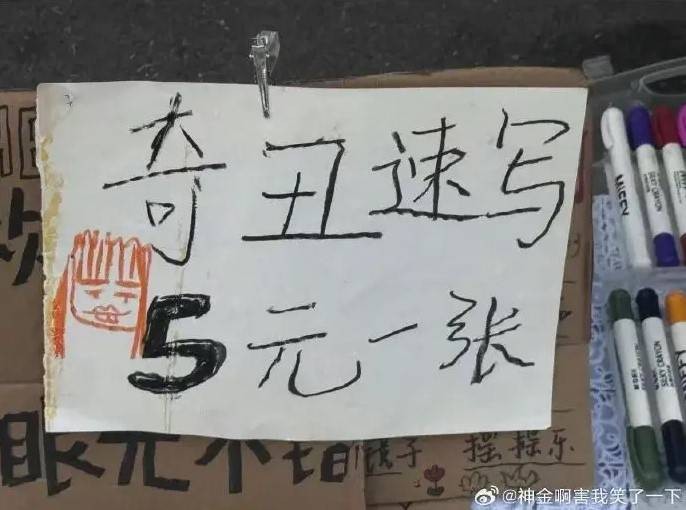 奇丑速写
5元一张
眼光不
镜子
摇摇乐
MIFFY
@神金啊害我笑了一下